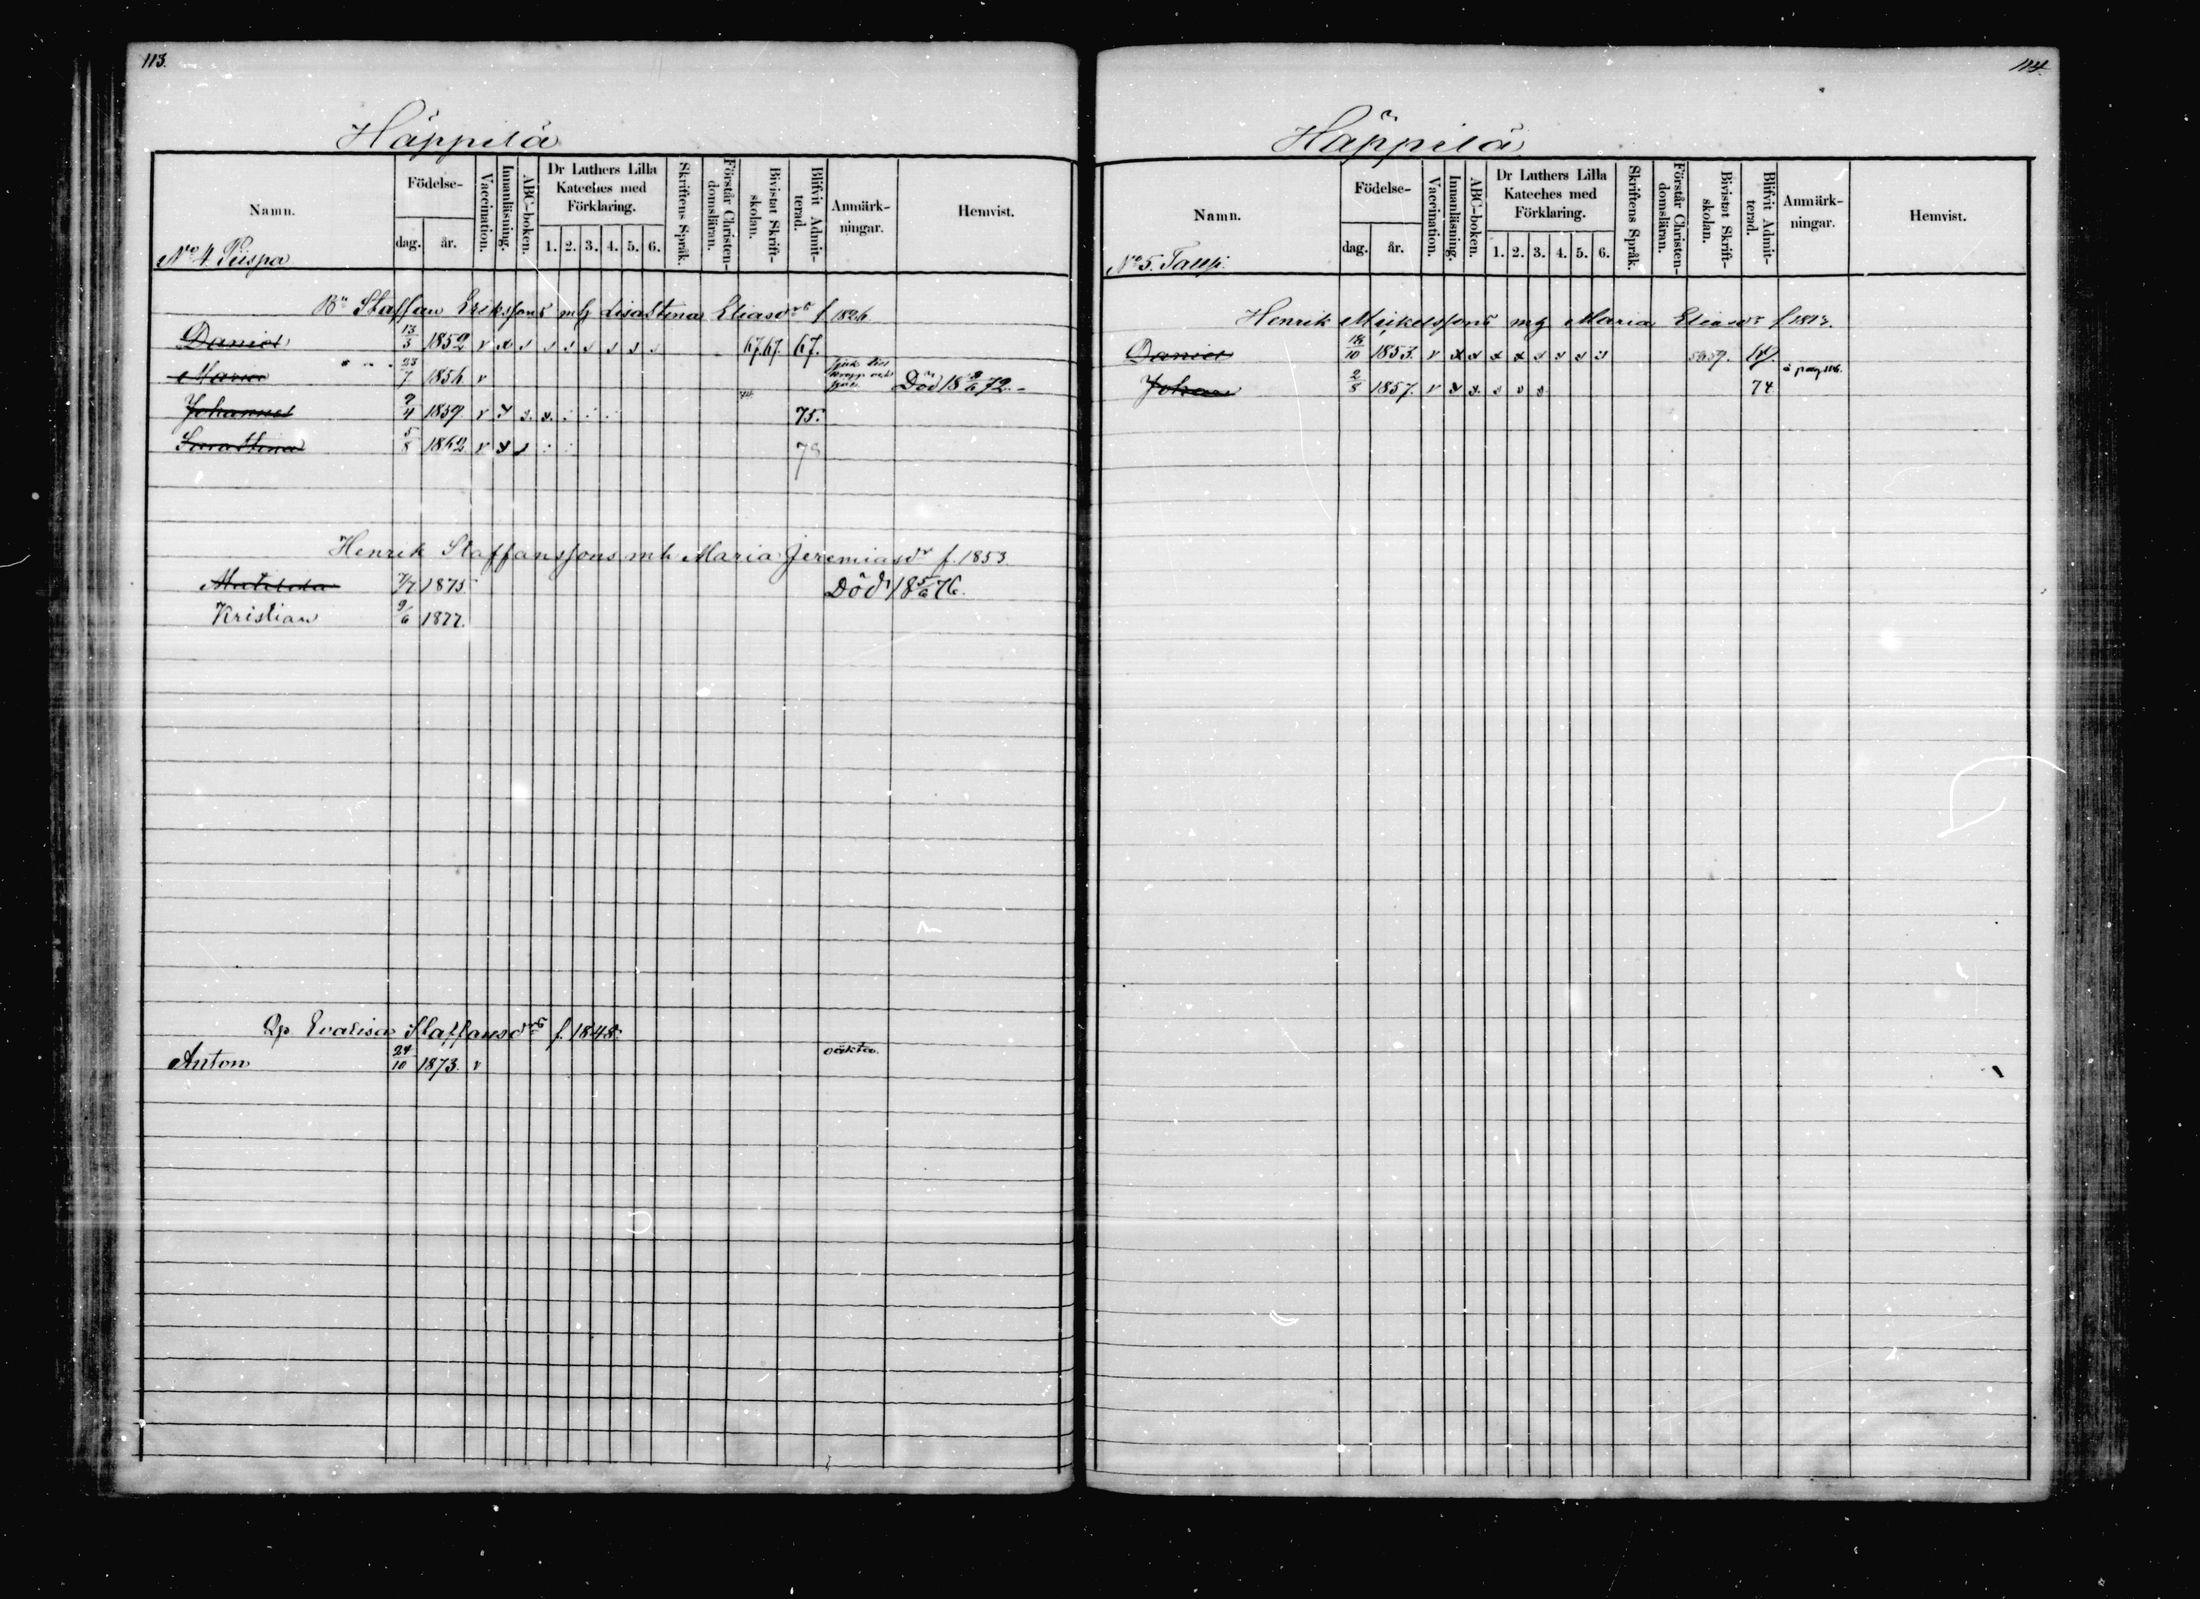 113.
Häppilä
Namn.
Födelse-
dag.
år.
Vaccination.
Innanläsning.
ABC-boken.
Dr Luthers Lilla
Kateches med
Förklaring.
1. 2. 3. 4. 5. 6.
Skriftens Språk.
Förstår Christen-
domsläran.
Bivistat Skrift-
skolan.
Blifvit Admit-
terad.
Anmärk-
ningar.
Hemvist.
No 4. Piispa
Bn Staffan Erikssons mh Lisa Stina Eliasdrs f 1826.
Daniel 13/3 1852 v x s s s s s s s 67.67. 67.
Maria 23/7 1854 v Död 18 /6 72.
Johannes 9/4 1859 v x s. s. 75.
Sara Stina 5/8 1862 v x s
Henrik Staffanssons mh Maria Jeremiasdr f. 1853.
Matilda 7/7 1875 Död 18 5/6 76.
Kristian 9/6 1877.
Qp. Evalisa Staffansdrs f. 1848.
Anton 24/10 1873. v oäkta.
114.
Häppilä
Namn.
Födelse-
dag.
år.
Vaccination.
Innanläsning.
ABC-boken.
Dr Luthers Lilla
Kateches med
Förklaring.
1. 2. 3. 4. 5. 6.
Skriftens Språk.
Förstår Christen-
domsläran.
Bivistat Skrift-
skolan.
Blifvit Admit-
terad.
Anmärk-
ningar.
Hemvist.
No 5.
Henrik Mikelssons mh Maria Eliasdr
Daniel 18/10 1853. v x x x x s s s s
Johan 2/8 1857. v x s. s s s. 74 å pag 116.